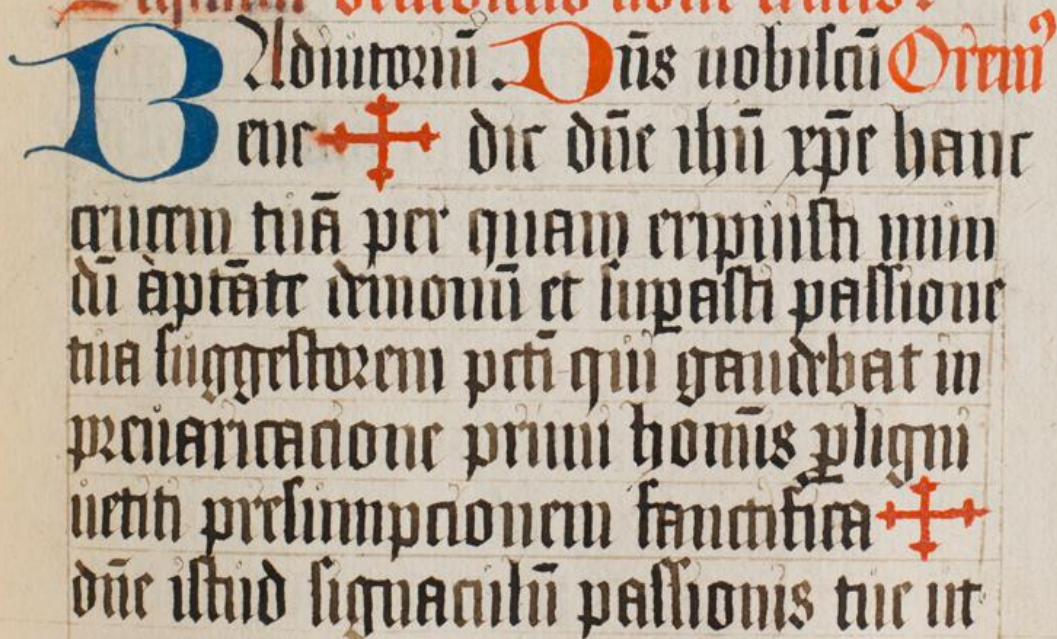 Adiutoriū. Dn̄s uobiscū Orem⁹
Bene ✠ dic dn̄e ihū xp̄e hanc
crucem tuā per quam eripuisti mun
dū a ptāte demonū et suꝑasti passione
tua suggestorem pcti qui gaudebat in
preuaricacione primi homīs ꝑ ligni
uetiti presumpcionem sanctifica ✠
dn̄e istud signaculū passionis tue ut